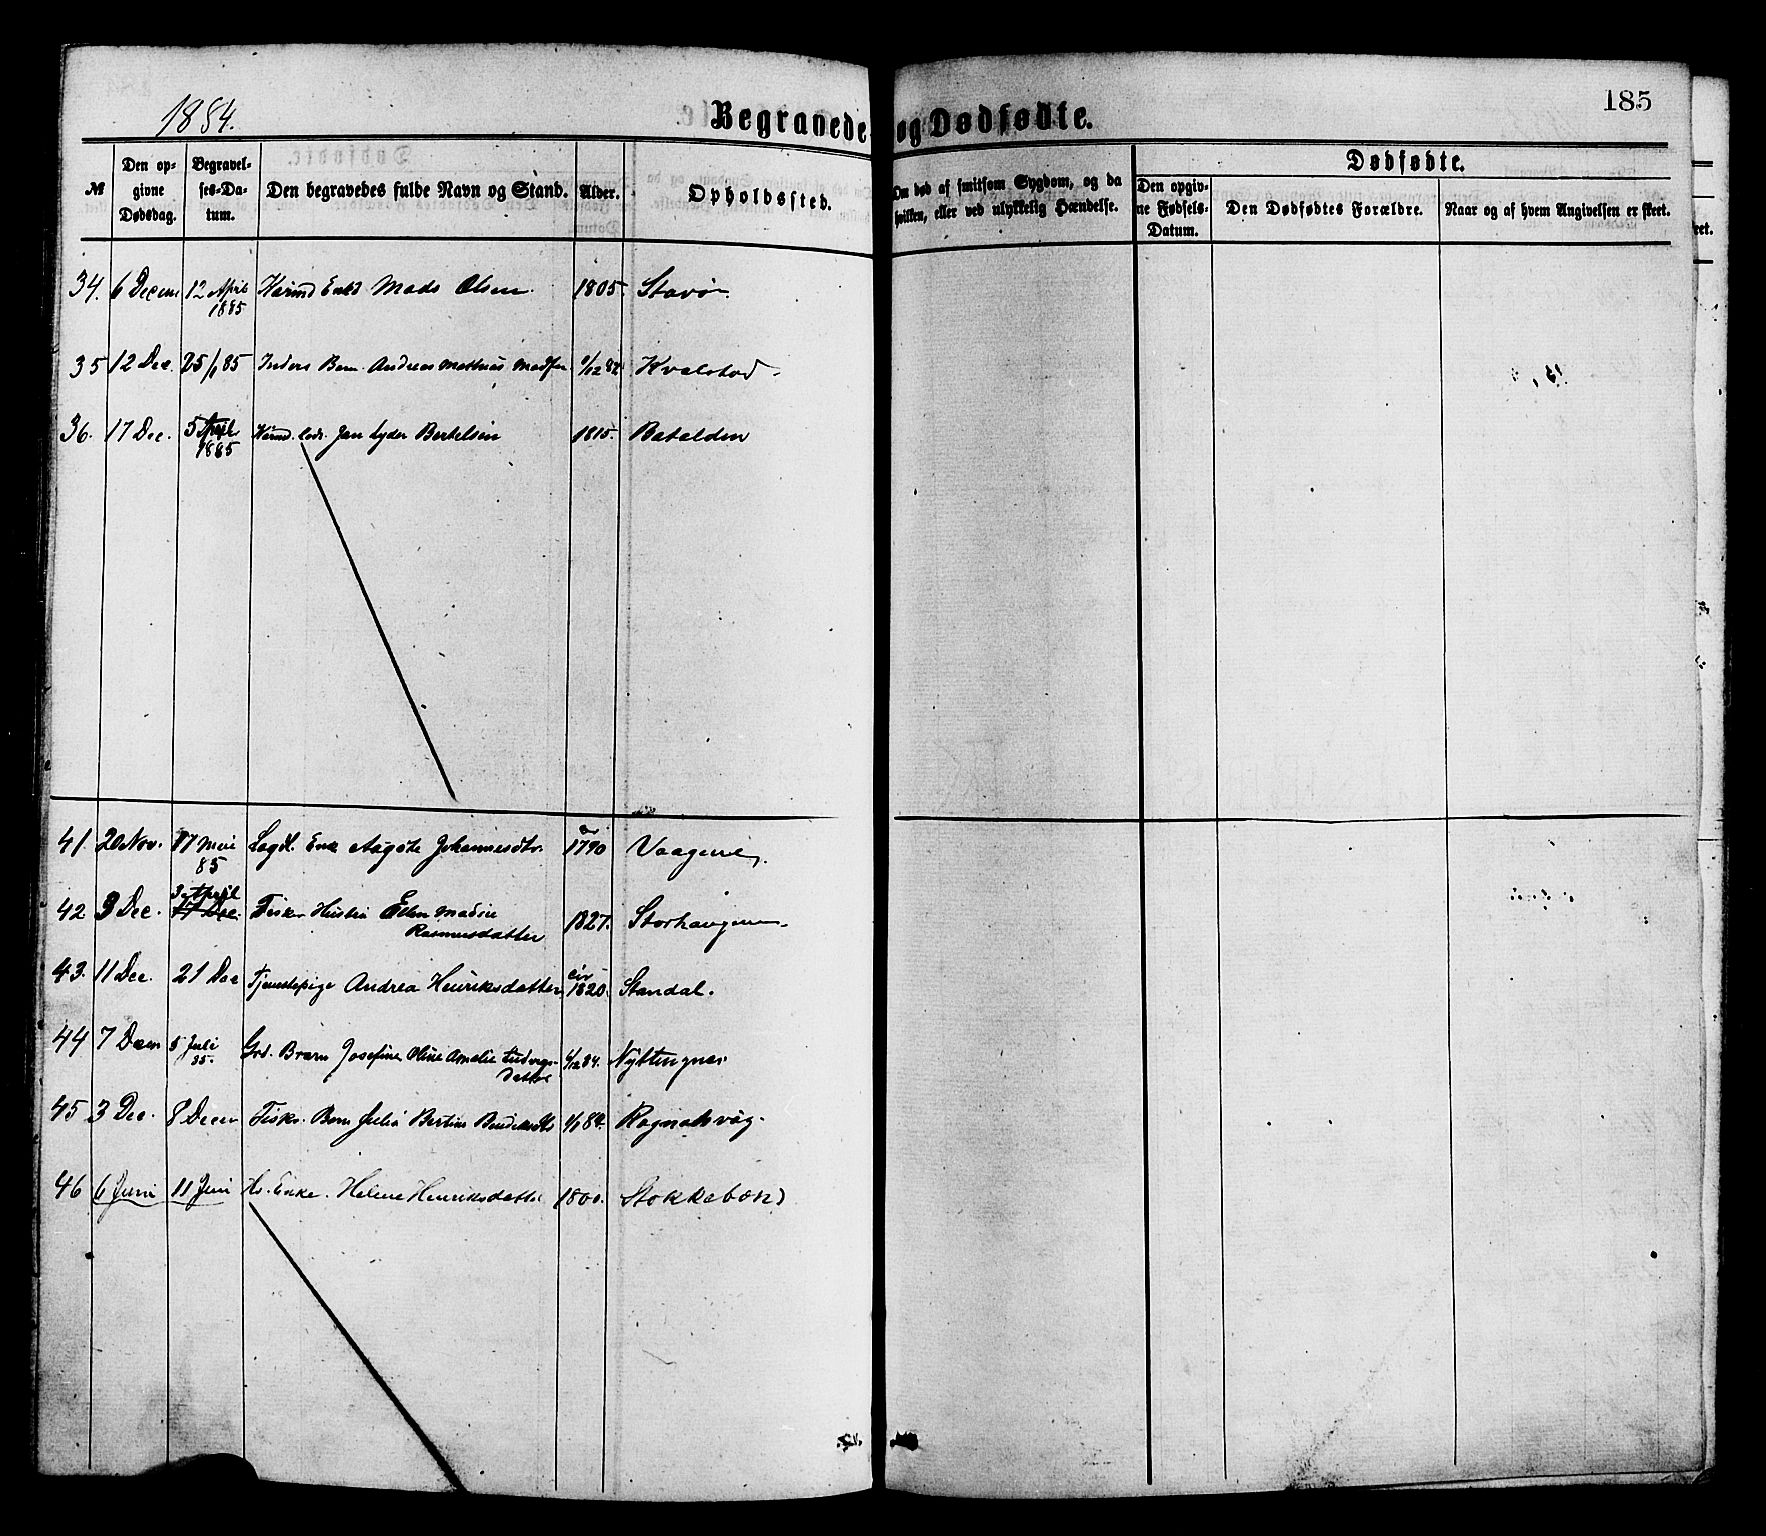 1884.
Begravede og Dødfødte.
185
№
Den opgivne Dødsdag.
Begravelses-Datum.
Den begravedes fulde Navn og Stand.
Alder.
Opholdssted.
Om død af smitsom Sygdom, og da hvilken, eller ved ulykkelig Hændelse.
Dødfødte.
Den opgivne Fødsels-Datum.
Den Dødfødtes Forældre.
Naar og af hvem Angivelsen er skeet.
34. 6 Decem 12 April 1885 Mads Olsen. 1805.
35 12 Dec. 25/1 85 Inders Barn Andreas Mathias Madsen /12 82 Kvalstad.
36. 17 Dec. 5 April 1885 Jan Lyder Bertelsen 1815. Batalden
41. 20 Nov. 17 Mai 85 Enk Aagote Johannesdtr. 1790 Vaagene.
42 3 Dec. 3 April 17 Dec. Fisker Hustru Ellen Madsie Rasmusdatter 1827. Storhaugen
43. 11 Dec. 21 Dec Tjenestepige Andrea Henriksdatter cir 1820. Standal.
44 7 Decem 5 Juli 85. Grd. Barn Josefine Oline Amalie Ludvigsdatter /12 84. Nyttingnes
45 3 Dec. 8 Decem Fisk. Barn Julia Bertine 1/1 84. Rognaldvåg.
46 6 Juni 11 Juni Hs. Enke. Helene Henriksdatter 1800. Stokkebøen